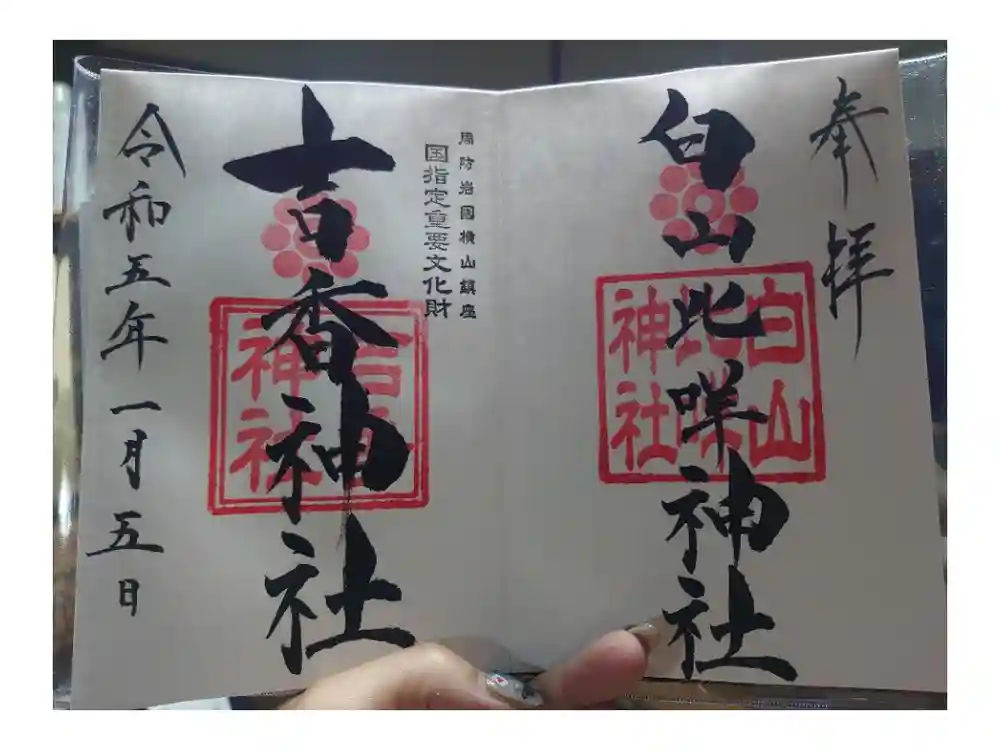 奉拝
白山比咩神社
白山
比咩
神社
周防岩国横山鎮座
国指定重要文化財
吉香神社
神社
令和五年一月五日